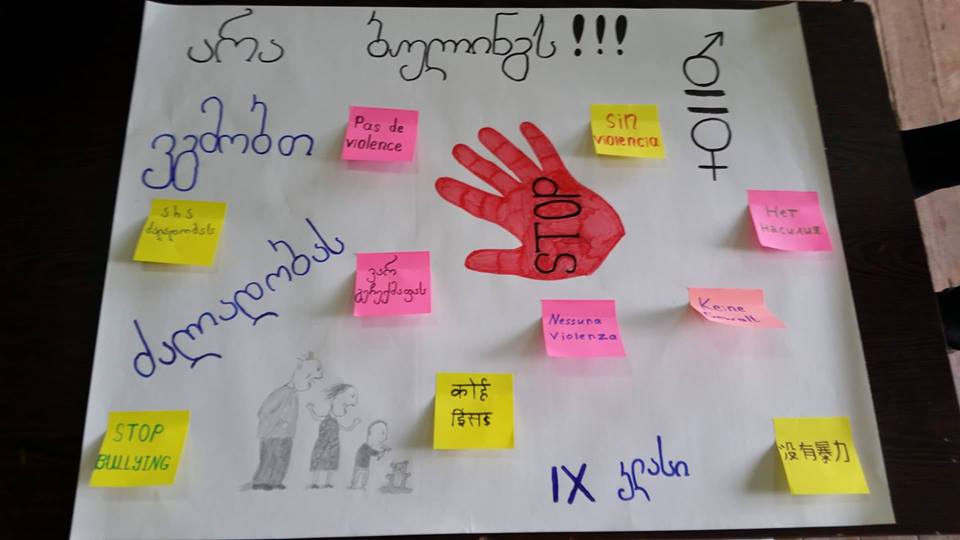 არა ბულინგს!!!
ვგმობთ
Pas de
violence
STOP
sin
violencia
არა
ძალადობას
Нет
насилия
ძალადობას
ვარ
Nessuna
Violenza
Keine
कोई
STOP
BULLYING
IX კლასი
没有暴力